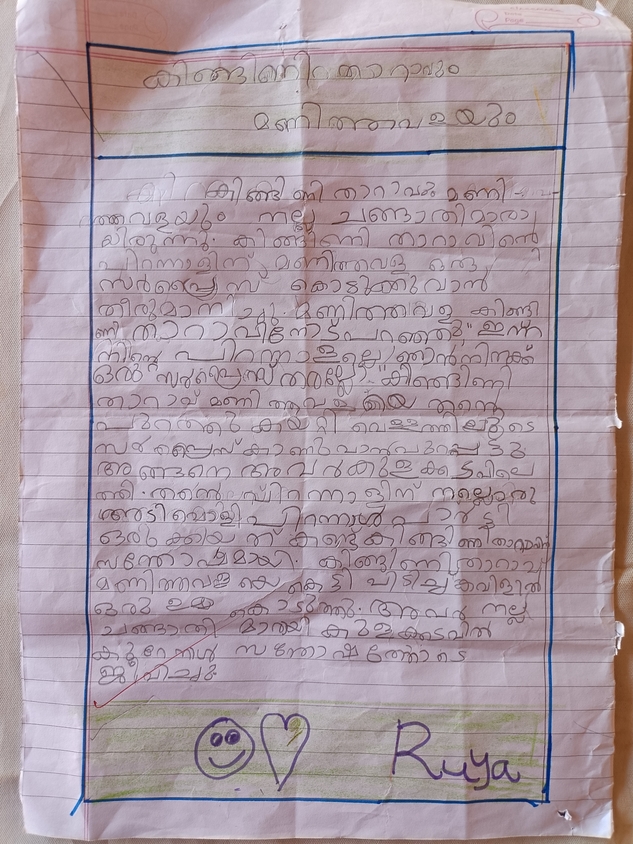 കിങ്ങിണിതാറാവും
മണിത്തവളയും
കിങ്ങിണി താറാവും മണി
ത്തവളയും നല്ല ചങ്ങാതിമാരാ
യിരുന്നു. കിങ്ങിണി താറാവിൻെ
പിറന്നാളിന് മണിത്തവള ഒരു
സർപ്രൈസ് കൊടുക്കുവാൻ
തീരുമാനിച്ചു. മണിത്തവള കിങ്ങി
ണി താറാവിനോട് പറഞ്ഞു "ഇന്ന്
നിന്റെ പിറന്നാളല്ലെ ഞാൻ നിനക്ക്
ഒരു സർപ്രൈസ് തരട്ടേ" കിങ്ങിണി
താറാവ് മണി ത്തവളയെ തന്റെ
പുറത്തു കയറ്റി വെള്ളത്തിലൂടെ
സർപ്രൈസ് കാണുവാൻ പുറപ്പെട്ടു
അങ്ങനെ അവർ കുളക്കടവിലെ
ത്തി. തൻെ പിറന്നാളിന് നല്ലൊരു
അടിപൊളി പിറന്നാൾ പാർട്ടി
ഒരുക്കിയത് കണ്ട് കിങ്ങിണിതാറാവിന്
സന്തോഷമായി. കിങ്ങിണിതാറാവ്
മണിത്തവളയെ കെട്ടി പിടിച്ച് കവിളിൽ
ഒരു ഉമ്മ കൊടുത്തു. അവർ നല്ല
ചങ്ങാതി മാരായി കുളക്കടവിൽ
കുറേനാൾ സന്തോഷത്തോടെ
ജീവിച്ചു.
Ruya